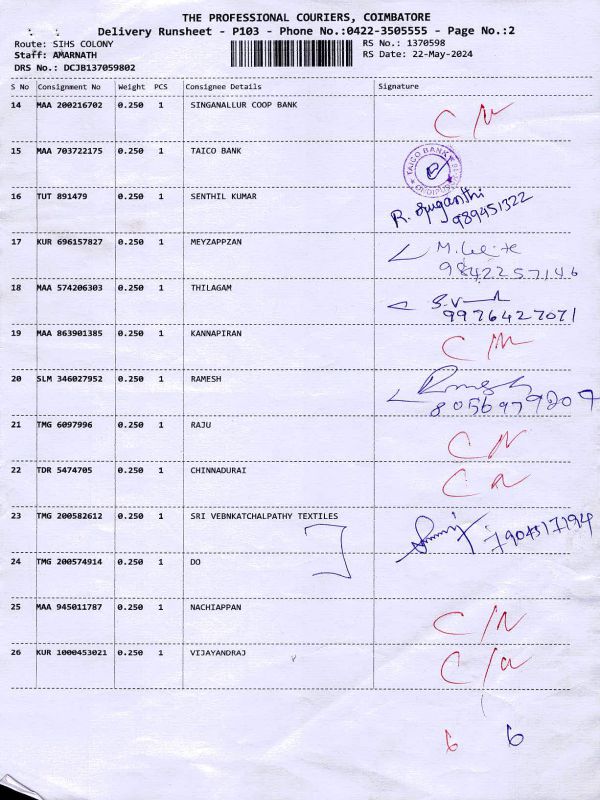 THE PROFESSIONAL COURIERS, COIMBATORE
Delivery Runsheet - P103 - Phone No.:0422-3505555 - Page No.:2
Route: SIHS COLONY
RS No.: 1370598
Staff: AMARNATH
RS Date: 22-May-2024
DRS No.: DCJB137059802
S No Consignment No Weight PCS Consignee Details Signature
14 MAA 200216702 0.250 1 SINGANALLUR COOP BANK
C N
15 MAA 703722175 0.250 1 TAICO BANK
TAICO BANK
16 TUT 891479 0.250 1 SENTHIL KUMAR
R. Suganthi
989451322
17 KUR 696157827 0.250 1 MEYZAPPZAN
9842257146
18 MAA 574206303 0.250 1 THILAGAM
9976427071
19 MAA 863901385 0.250 1 KANNAPIRAN
20 SLM 346027952 0.250 1 RAMESH
Ramesh
8056979207
21 TMG 6097996 0.250 1 RAJU
C N
22 TDR 5474705 0.250 1 CHINNADURAI
C a
23 TMG 200582612 0.250 1 SRI VEBNKATCHALPATHY TEXTILES
7904517194
24 TMG 200574914 0.250 1 DO
25 MAA 945011787 0.250 1 NACHIAPPAN
C/N
26 KUR 1000453021 0.250 1 VIJAYANDRAJ
C/a
6 6